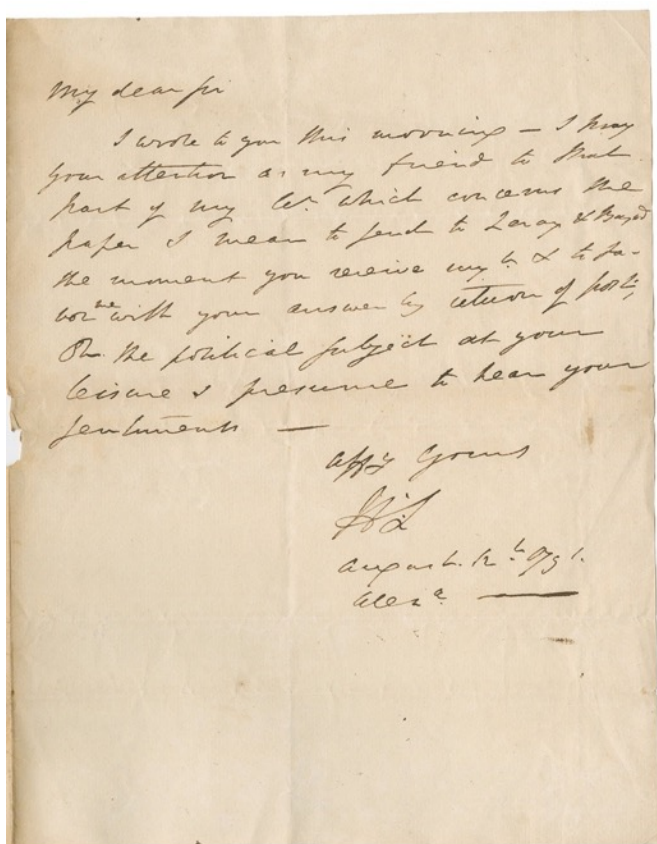 My dear sir
I wrote to you this morning — I pray
your attention as my friend to that
part of my let. which concerns the
paper I mean to send to Leroy & Bayard
the moment you receive my l. & to fa-
vor me with your answer by return of post,
On the political subject at your
leisure I presume to hear your
sentiments —
affy yours
HL
August. 12th 1791.
Alexa. —